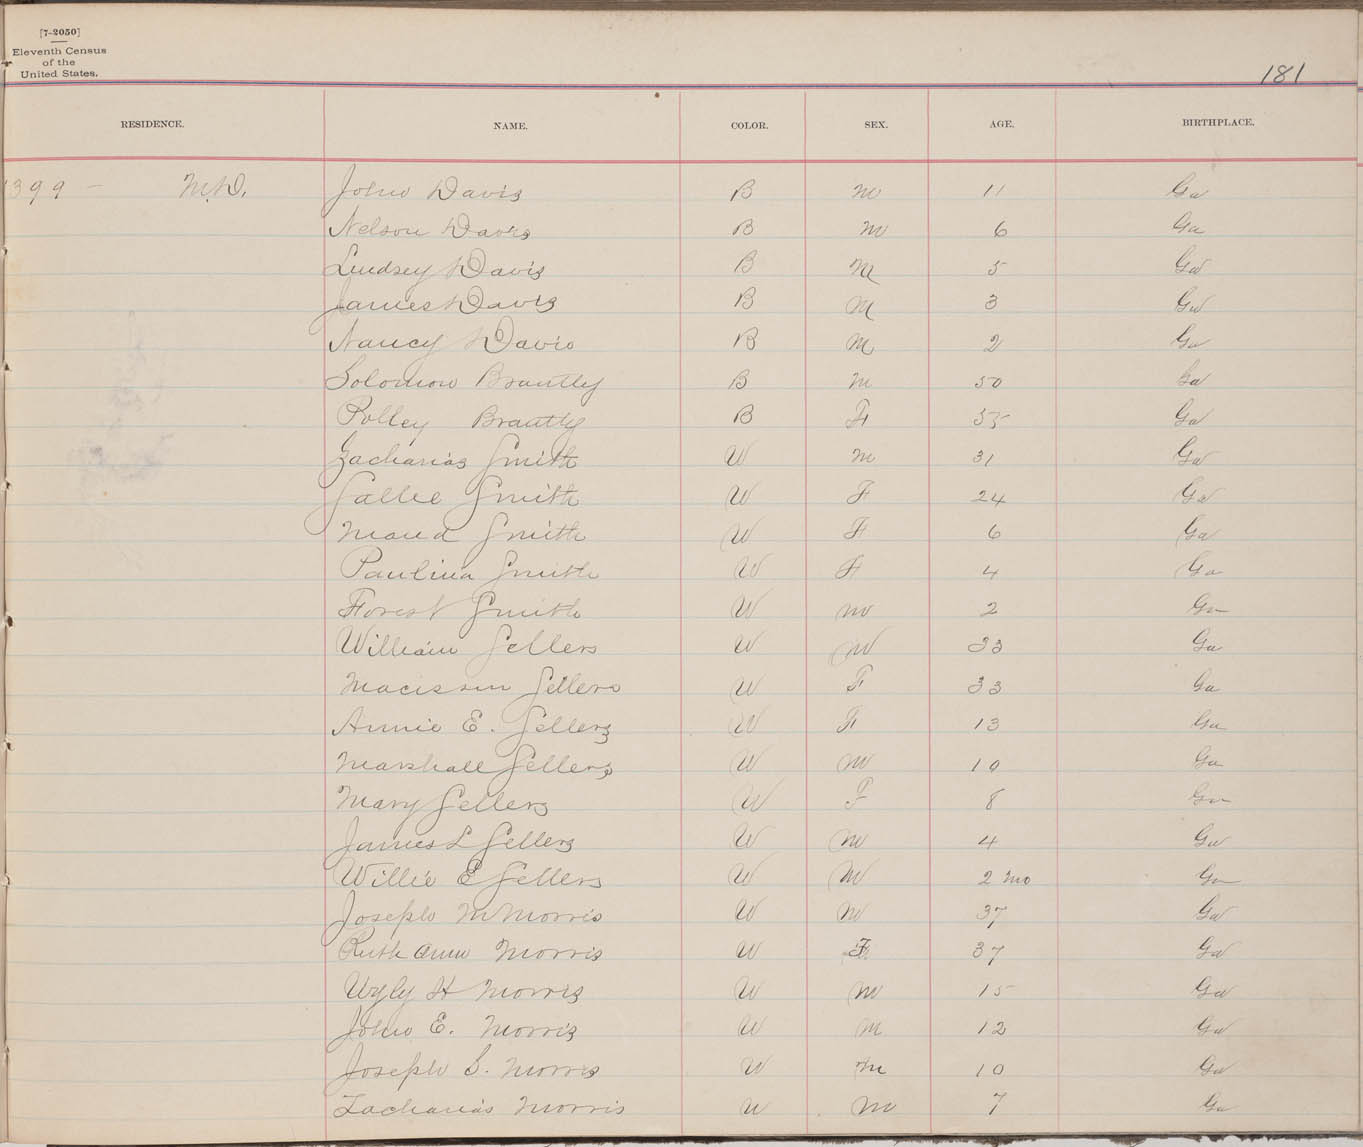 [7-2050]
Eleventh Census
of the
United States.
181
RESIDENCE. NAME. COLOR. SEX. AGE. BIRTHPLACE.
1399 – M.D. John Davis B M 11 Ga
Nelson Davis B M 6 Ga
Lindsey Davis B M 5 Ga
James Davis B M 3 Ga
Nancy Davis B M 2 Ga
Solomon Brantly B M 50 Ga
Polley Brantly B F 55 Ga
Zacharias Smith W M 31 Ga
Sallie Smith W F 24 Ga
Maud Smith W F 6 Ga
Paulina Smith W F 4 Ga
Forest Smith W M 2 Ga
William Sellers W M 33 Ga
Macissin Sellers W F 33 Ga
Annie E. Sellers W F 13 Ga
Marshall Sellers W M 10 Ga
Mary Sellers W F 8 Ga
James L Sellers W M 4 Ga
Willie E Sellers W M 2 mo Ga
Joseph M Morris W M 37 Ga
Ruth Ann Morris W F 37 Ga
Wyly H Morris W M 15 Ga
John E. Morris W M 12 Ga
Joseph S. Morris W M 10 Ga
Zacharias Morris W M 7 Ga